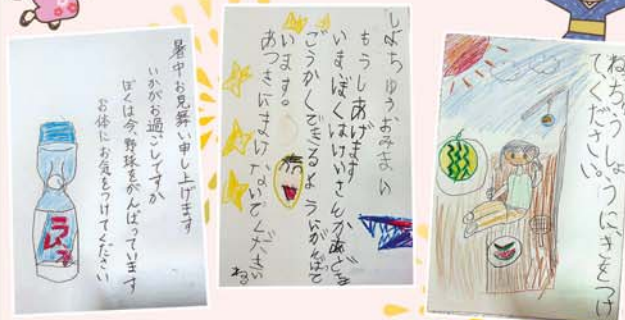 暑中お見舞い申し上げます
いかがお過ごしですか
ぼくは今、野球をがんばっています
お体にお気をつけてください
ラムネ
しょちゅうおみまい
もうしあげます
いまぼくはけいさん
ごうかくできるようにがんばって
います。
あつさにまけないでください
ねっちゅうしょうにきをつけ
てください。